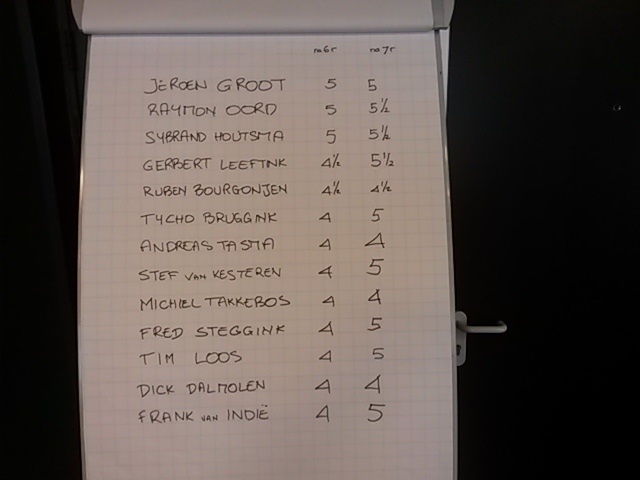 na6r na7r
JEROEN GROOT 5 5
RAYMON OORD 5 5½
SYBRAND HOUTSMA 5 5½
GERBERT LEEFTINK 4½ 5½
RUBEN BOURGONJEN 4½ 4½
TYCHO BRUGGINK 4 5
ANDREAS TASMA 4 4
STEF van KESTEREN 4 5
MICHIEL TAKKEBOS 4 4
FRED STEGGINK 4 5
TIM LOOS 4 5
DICK DALMOLEN 4 4
FRANK van INDIË 4 5